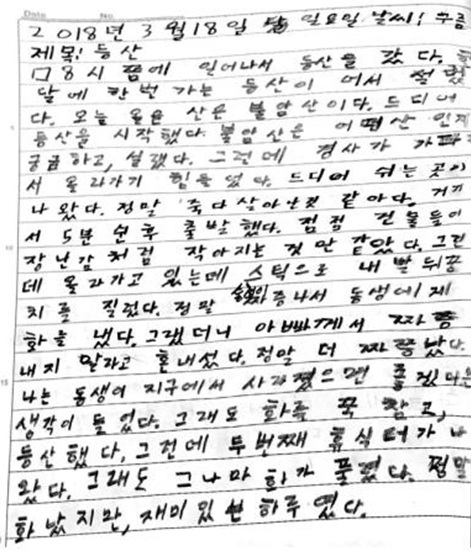 Date No.
2018년 3월18일 일요일 날씨! 흐름
제목! 등산
8시 쯤에 일어나서 등산을 갔다.
달에 한번 가는 등산이 어서 설렜
다. 오늘 올은 산은 불암산이다. 드디어
등산을 시작했다. 불암산은 어떤 산인지
궁금하고, 설렜다. 그런데 경사가 가파
서 올라가기 힘들었다. 드디어 쉬는 곳이
나 왔다. 정말 죽다 살아난것 같아다. 거기
서 5분 쉰후 출발했다. 점점 건물들이
장난감 처럼 작아지는 것만 같았다. 그런
데 올라가고 있는데 스틱으로 내 발 뒤꿈
치를 찔렀다. 정말 짜증나서 동생에게
화를 냈다. 그랬더니 아빠께서 짜증
내지 말라고 혼내셨다. 정말 더 짜증났다.
나는 동생이 지구에서 사라졌으면 좋겠다는
생각이 들었다. 그래도 화를 꾹 참고,
등산했다. 그런데 두번째 휴식터가 나
왔다. 그래도 그나마 화가 풀렸다. 정말
화 났지만, 재미 있는 하루 였다.